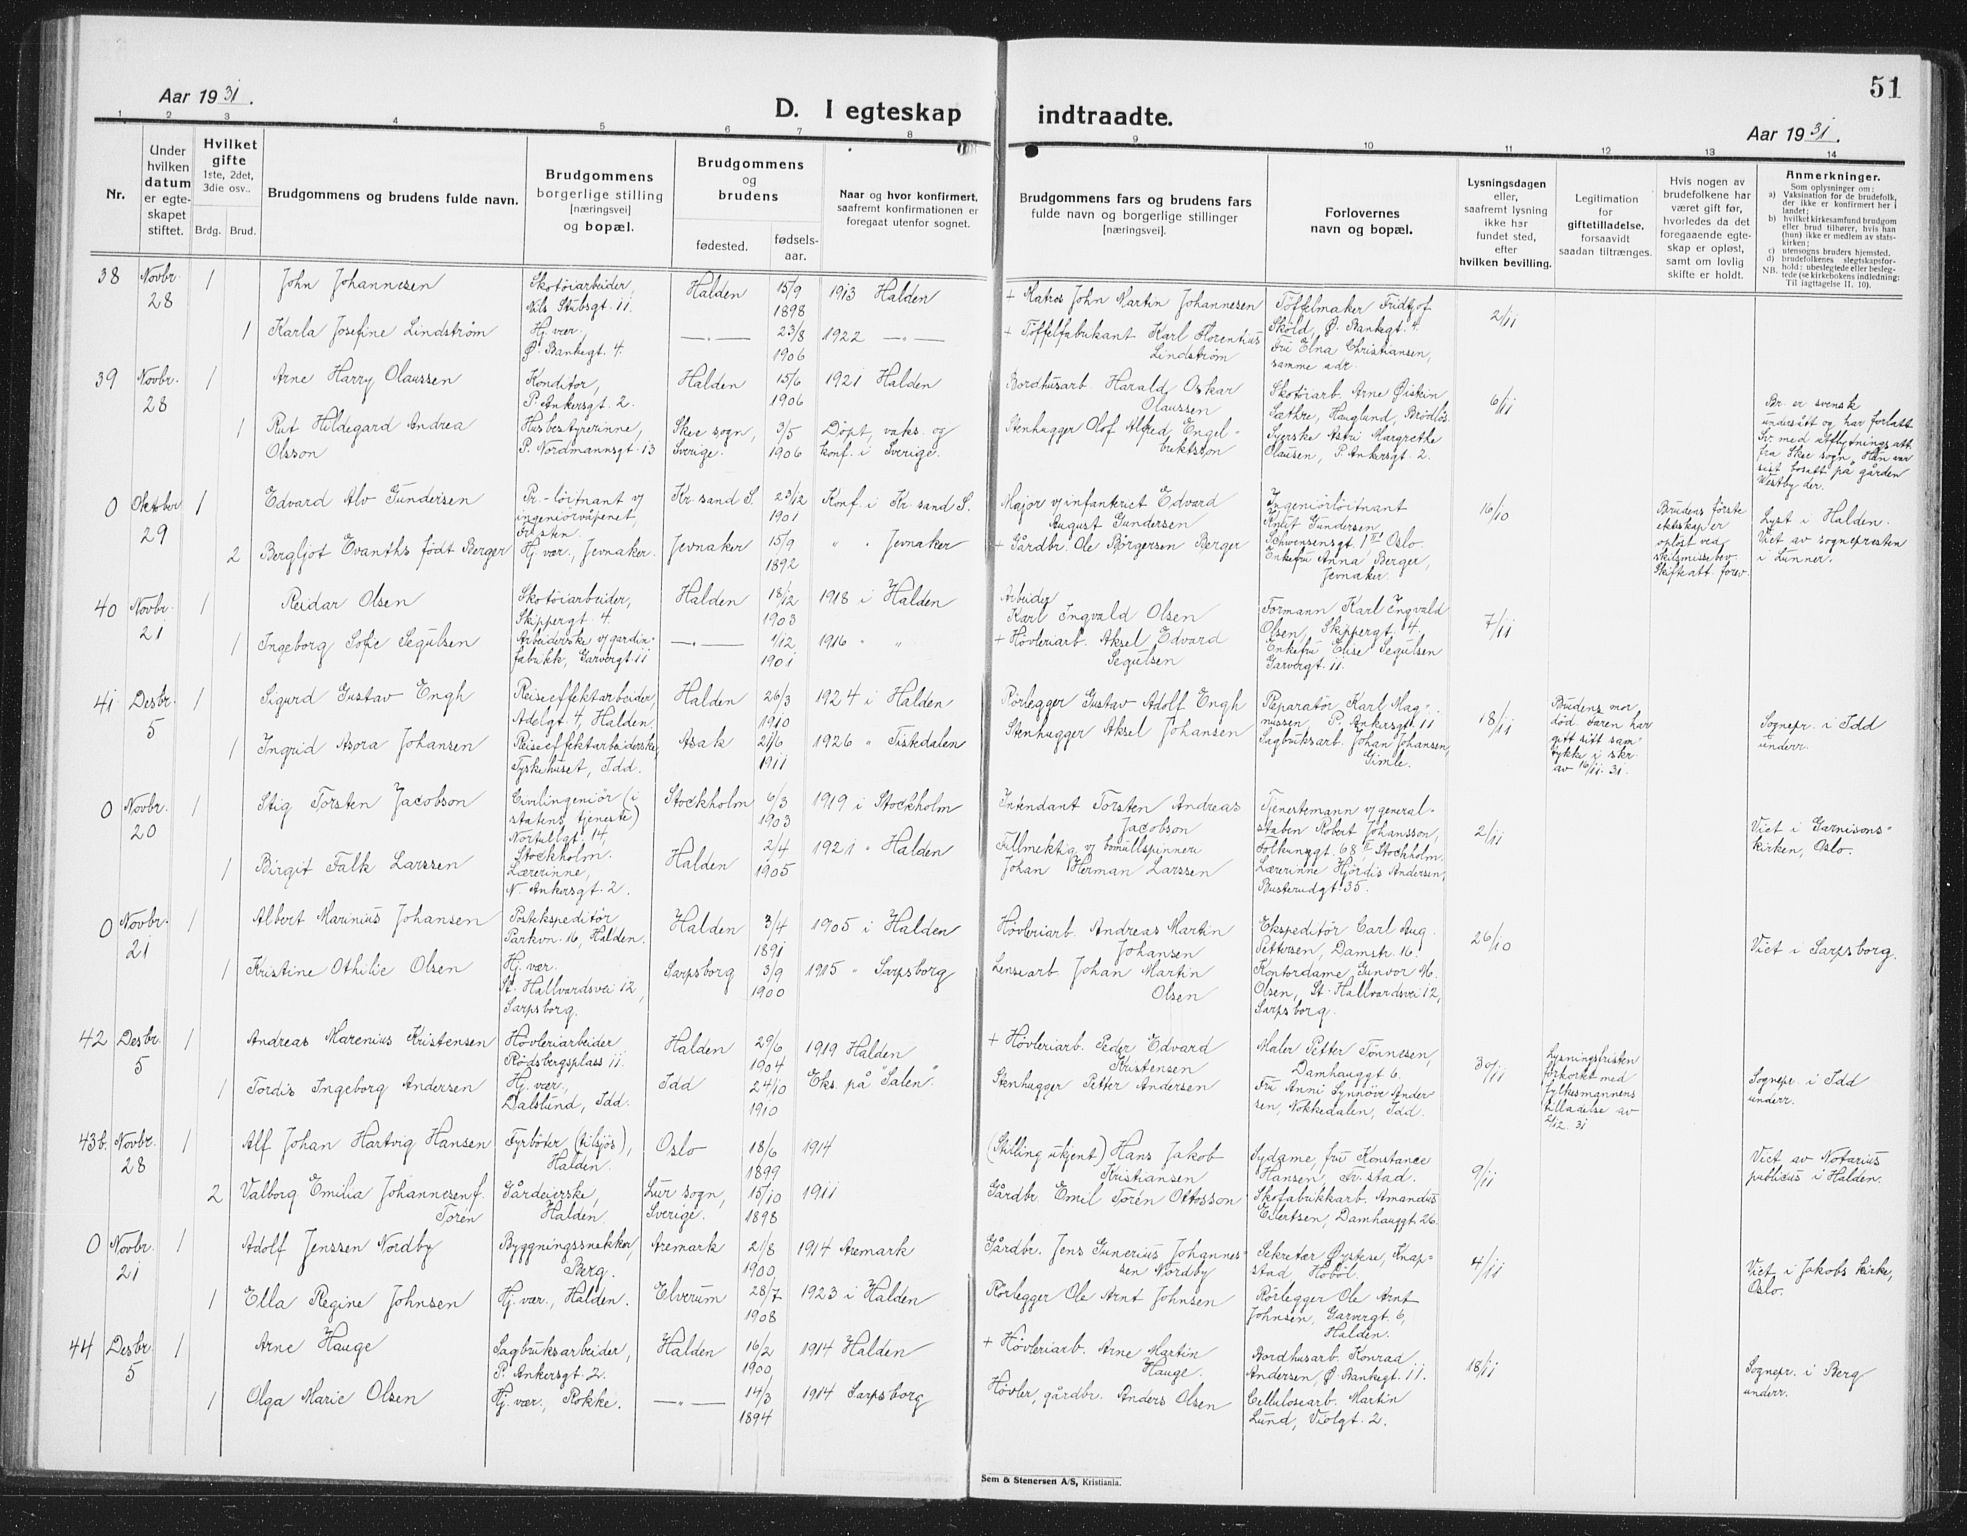 51
Aar 1931.
D. I egteskap indtraadte.
Aar 1931.
1 2 3 4 5 6 7 8 9 10 11 12 13 14
Nr.
Under
hvilken
datum
er egte-
skapet
stiftet.
Hvilket
gifte
1ste, 2det,
3die osv..
Brdg. Brud.
Brudgommens og brudens fulde navn.
Brudgommens
borgerlige stilling
[næringsvei]
og bopæl.
Brudgommens
og
brudens
fødested.
fødsels-
aar.
Naar og hvor konfirmert,
saafremt konfirmationen er
foregaat utenfor sognet.
Brudgommens fars og brudens fars
fulde navn og borgerlige stillinger
[næringsvei].
Forlovernes
navn og bopæl.
Lysningsdagen
eller,
saafremt lysning
ikke har
fundet sted,
efter
hvilken bevilling.
Legitimation
for
giftetilladelse,
forsaavidt
saadan tiltrænges.
Hvis nogen av
brudefolkene har
været gift før,
hvorledes da det
foregaaende egte-
skap er opløst,
samt om lovlig
skifte er holdt.
Anmerkninger.
Som oplysninger om:
a) Vaksination for de brudefolk,
der ikke er konfirmert her i
landet;
b) hvilket kirkesamfund brudgom
eller brud tilhører, hvis han
(hun) ikke er medlem av stats-
kirken;
c) utensogns bruders hjemsted.
d) brudefolkenes slegtskapsfor-
hold: ubeslegtede eller besleg-
NB. tede (se kirkebokens indledning:
Til iagttagelse II, 10).
38 Novbr. 28 1 John Johannesen
Skotøiarbeider,
Nils Stubsgt. 11.
Halden 15/9 1898 1913 Halden
+ Matros John Martin Johannesen
Tøffelmaker Fridtjof
Sköld, Ø. Bankegt. 4.
2/11
1 Karla Josefine Lindstrøm
Hj. vær.
Ø. Bankegt. 4.
—„— 23/8 1906 1922 —„—
+ Tøffelfabrikant Karl Florentius
Lindstrøm
Fru Elna Christiansen,
samme adr.
39 Novbr. 28 1 Arne Harry Olaussen
Konditor,
P. Ankersgt. 2.
Halden 15/6 1906 1921 Halden
Bordhusarb. Harald Oskar
Olaussen
Skotøiarb. Arne Øistein
Sæthre, Hauglund, Brødløs.
6/11
1 Rut Hildegard Andrea
Olsson
Husbestyrerinne,
P. Nordmannsgt. 13
Skee sogn,
Sverige.
3/5 1906
Døpt, vaks. og
konf. i Sverige.
Stenhugger Olof Alfred Engel-
brektsson
Syerske Astri Margrethe
Olausen, P. Ankersgt. 2.
Br. er svensk
undersått og har forlatt
Sv. med utflytningsatt.
fra Skee sogn. Hun var
sist bosatt på gården
Westby der.
0 Oktober 29 1 Edvard Alv Gundersen
Pr.-løitnant v/
ingeniørvåpenet,
Kr.sand S. 23/12 1901 Konf. i Kr.sand S.
Major v/ infanteriet Edvard
August Gundersen
Ingeniørløitnant
Knut Gundersen
Schwensensgt. 1 IV Oslo.
16/10
2 Bergljot Evanths født Berger
Hj. vær, Jevnaker.
Jevnaker 15/9 1892 „ „ Jevnaker
+ Gårdbr. Ole Børgersen Berger
Enkefru Anna Berger,
Jevnaker.
Brudens første
ekteskap er
opløst ved
skilsmissebev.
Skifteatt. forev.
Lyst i Halden.
Viet av sognepresten
i Lunner.
40 Novbr. 21 1 Reidar Olsen
Skotøiarbeider,
Skippergt. 4.
Halden 18/12 1903 1918 i Halden
Arbeider
Karl Ingvald Olsen
Formann Karl Ingvald
Olsen, Skippergt. 4.
7/11
1 Ingeborg Sofie Segulsen
Arbeiderske v/ gardin-
fabrikk, Garvergt. 11
—„— 1/12 1901 1916 „ „
+ Høvleriarb. Aksel Edvard
Segulsen
Enkefru Elise Segulsen
Garvergt. 11.
41 Desbr. 5 1 Sigurd Gustav Engh
Reiseeffektarbeider,
Adelgt. 4, Halden.
Halden 26/3 1910 1924 i Halden
Rørlegger Gustav Adolf Engh
Reparatør Karl Mag-
nussen, P. Ankersgt. 11
18/11
1 Ingrid Asora Johansen
Reiseeffektarbeiderske,
Tyskehuset, Idd.
Asak 21/6 1911 1926 „ Tistedalen
Stenhugger Aksel Johansen
Sagbruksarb. Johan Johansen,
Gimle.
Brudens mor
død. Faren har
gitt sitt sam-
tykke i skr.
av 16/11. 31.
Sognepr. i Idd
underr.
0 Novbr. 20 1 Stig Torsten Jacobson
Civilingeniør (i
statens tjeneste)
Nortullgt. 14,
Stockholm.
Stockholm 6/3 1903 1919 i Stockholm
Intendant Torsten Andreas
Jacobson
Tjenestemann v/ general-
staben Robert Johansson,
Folkungagt. 68, II Stockholm.
2/11
1 Birgit Falk Larssen
Lærerinne,
N. Ankersgt. 2.
Halden 2/4 1905 1921 „ Halden
Fillmektig v/ bomullspinneri
Johan Herman Larssen
Lærerinne Hjørdis Andersen,
Busterudgt. 35.
Viet i Garnisons-
kirken, Oslo.
0 Novbr. 21 1 Albert Marinius Johansen
Postekspeditør
Parkvn. 16, Halden.
Halden 3/4 1891 1905 i Halden
Høvleriarb. Andreas Martin
Johansen
Ekspeditør Carl Aug.
Pettersen, Damstr. 16.
26/10
1 Kristine Othilie Olsen
Hj. vær.
St. Hallvardsvei 12,
Sarpsborg.
Sarpsborg 3/9 1900 1915 „ Sarpsborg
Lensearb. Johan Martin
Olsen
Kontordame Gunvor M.
Olsen, St. Hallvardsvei 12,
Sarpsborg.
Viet i Sarpsborg.
42 Desbr. 5 1 Andreas Marenius Kristensen
Høvleriarbeider
Rødsbergsplass 11.
Halden 29/6 1904 1919 Halden
+ Høvleriarb. Peder Edvard
Kristensen
Maler Petter Tønnesen,
Damhauggt 6.
30/11
1 Tordis Ingeborg Andersen
Hj. vær.,
Dalslund, Idd.
Idd 24/10 1910 Eks. på "Salen".
Stenhugger Petter Andersen
Fru Anni Synnøve Ander-
sen, Nokkedalen, Idd.
Lysningsfristen
forkortet med
fylkesmannens
tilladelse av
2/12. 31
Sognepr. i Idd
underr.
43b. Novbr. 28 1 Alf Johan Hartvig Hansen
Fyrbøter, (tilsjøs),
Halden.
Oslo 18/6 1899 1914
(Stilling ukjent) Hans Jakob
Kristiansen
Sydame, fru Konstance
Hansen, Fr.stad.
9/11
2 Valborg Emilia Johannesen f.
Torén
Gårdeierske,
Halden.
Lur sogn,
Sverige.
15/10 1898 1911
Gårdbr. Emil Torén Ottosson
Skofabrikkarb. Amandus
Eilertsen, Damhauggt. 26.
Viet av Notarius
publicus i Halden.
0 Novbr. 21 1 Adolf Jenssen Nordby
Byggningssnekker,
Berg.
Aremark 21/8 1900 1914 Aremark
Gårdbr. Jens Gunerius Johannes-
sen Nordby
Sekretær Øystese, Knap-
stad Hobøl.
4/11
1 Ella Regine Johnsen
Hj. vær., Halden.
Elverum 28/7 1908 1923 i Halden
Rørlegger Ole Arnt Johnsen
Rørlegger Ole Arnt
Johnsen, Garvergt. 6,
Halden.
Viet i Jakobs kirke,
Oslo.
44 Desbr. 5 1 Arne Hauge
Sagbruksarbeider,
P. Ankersgt. 2.
Halden 16/2 1900 1914 Halden
+ Høvleriarb. Arne Martin
Hauge.
Bordhusarb. Konrad
Andersen, Ø Bankegt. 11.
18/11
1 Olga Marie Olsen
Hj. vær., Rokke.
—„— 14/3 1894 1914 Sarpsborg
Høvler, gårdbr. Anders Olsen
Cellulosearb. Martin
Lund, Violgt. 2.
Sognepr. i Berg
underr.
Sem & Stenersen A/S, Kristiania.